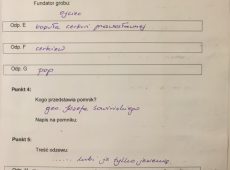 Fundator grobu:
ojciec
Odp. E kopuła cerkwi prawosławnej
Odp. F cerkiew
Odp. G pop
Punkt 4:
Kogo przedstawia pomnik?
gen. Józefa Sowińskiego
Napis na pomniku.
Punkt 5:
Treść odzewu:
już tylko